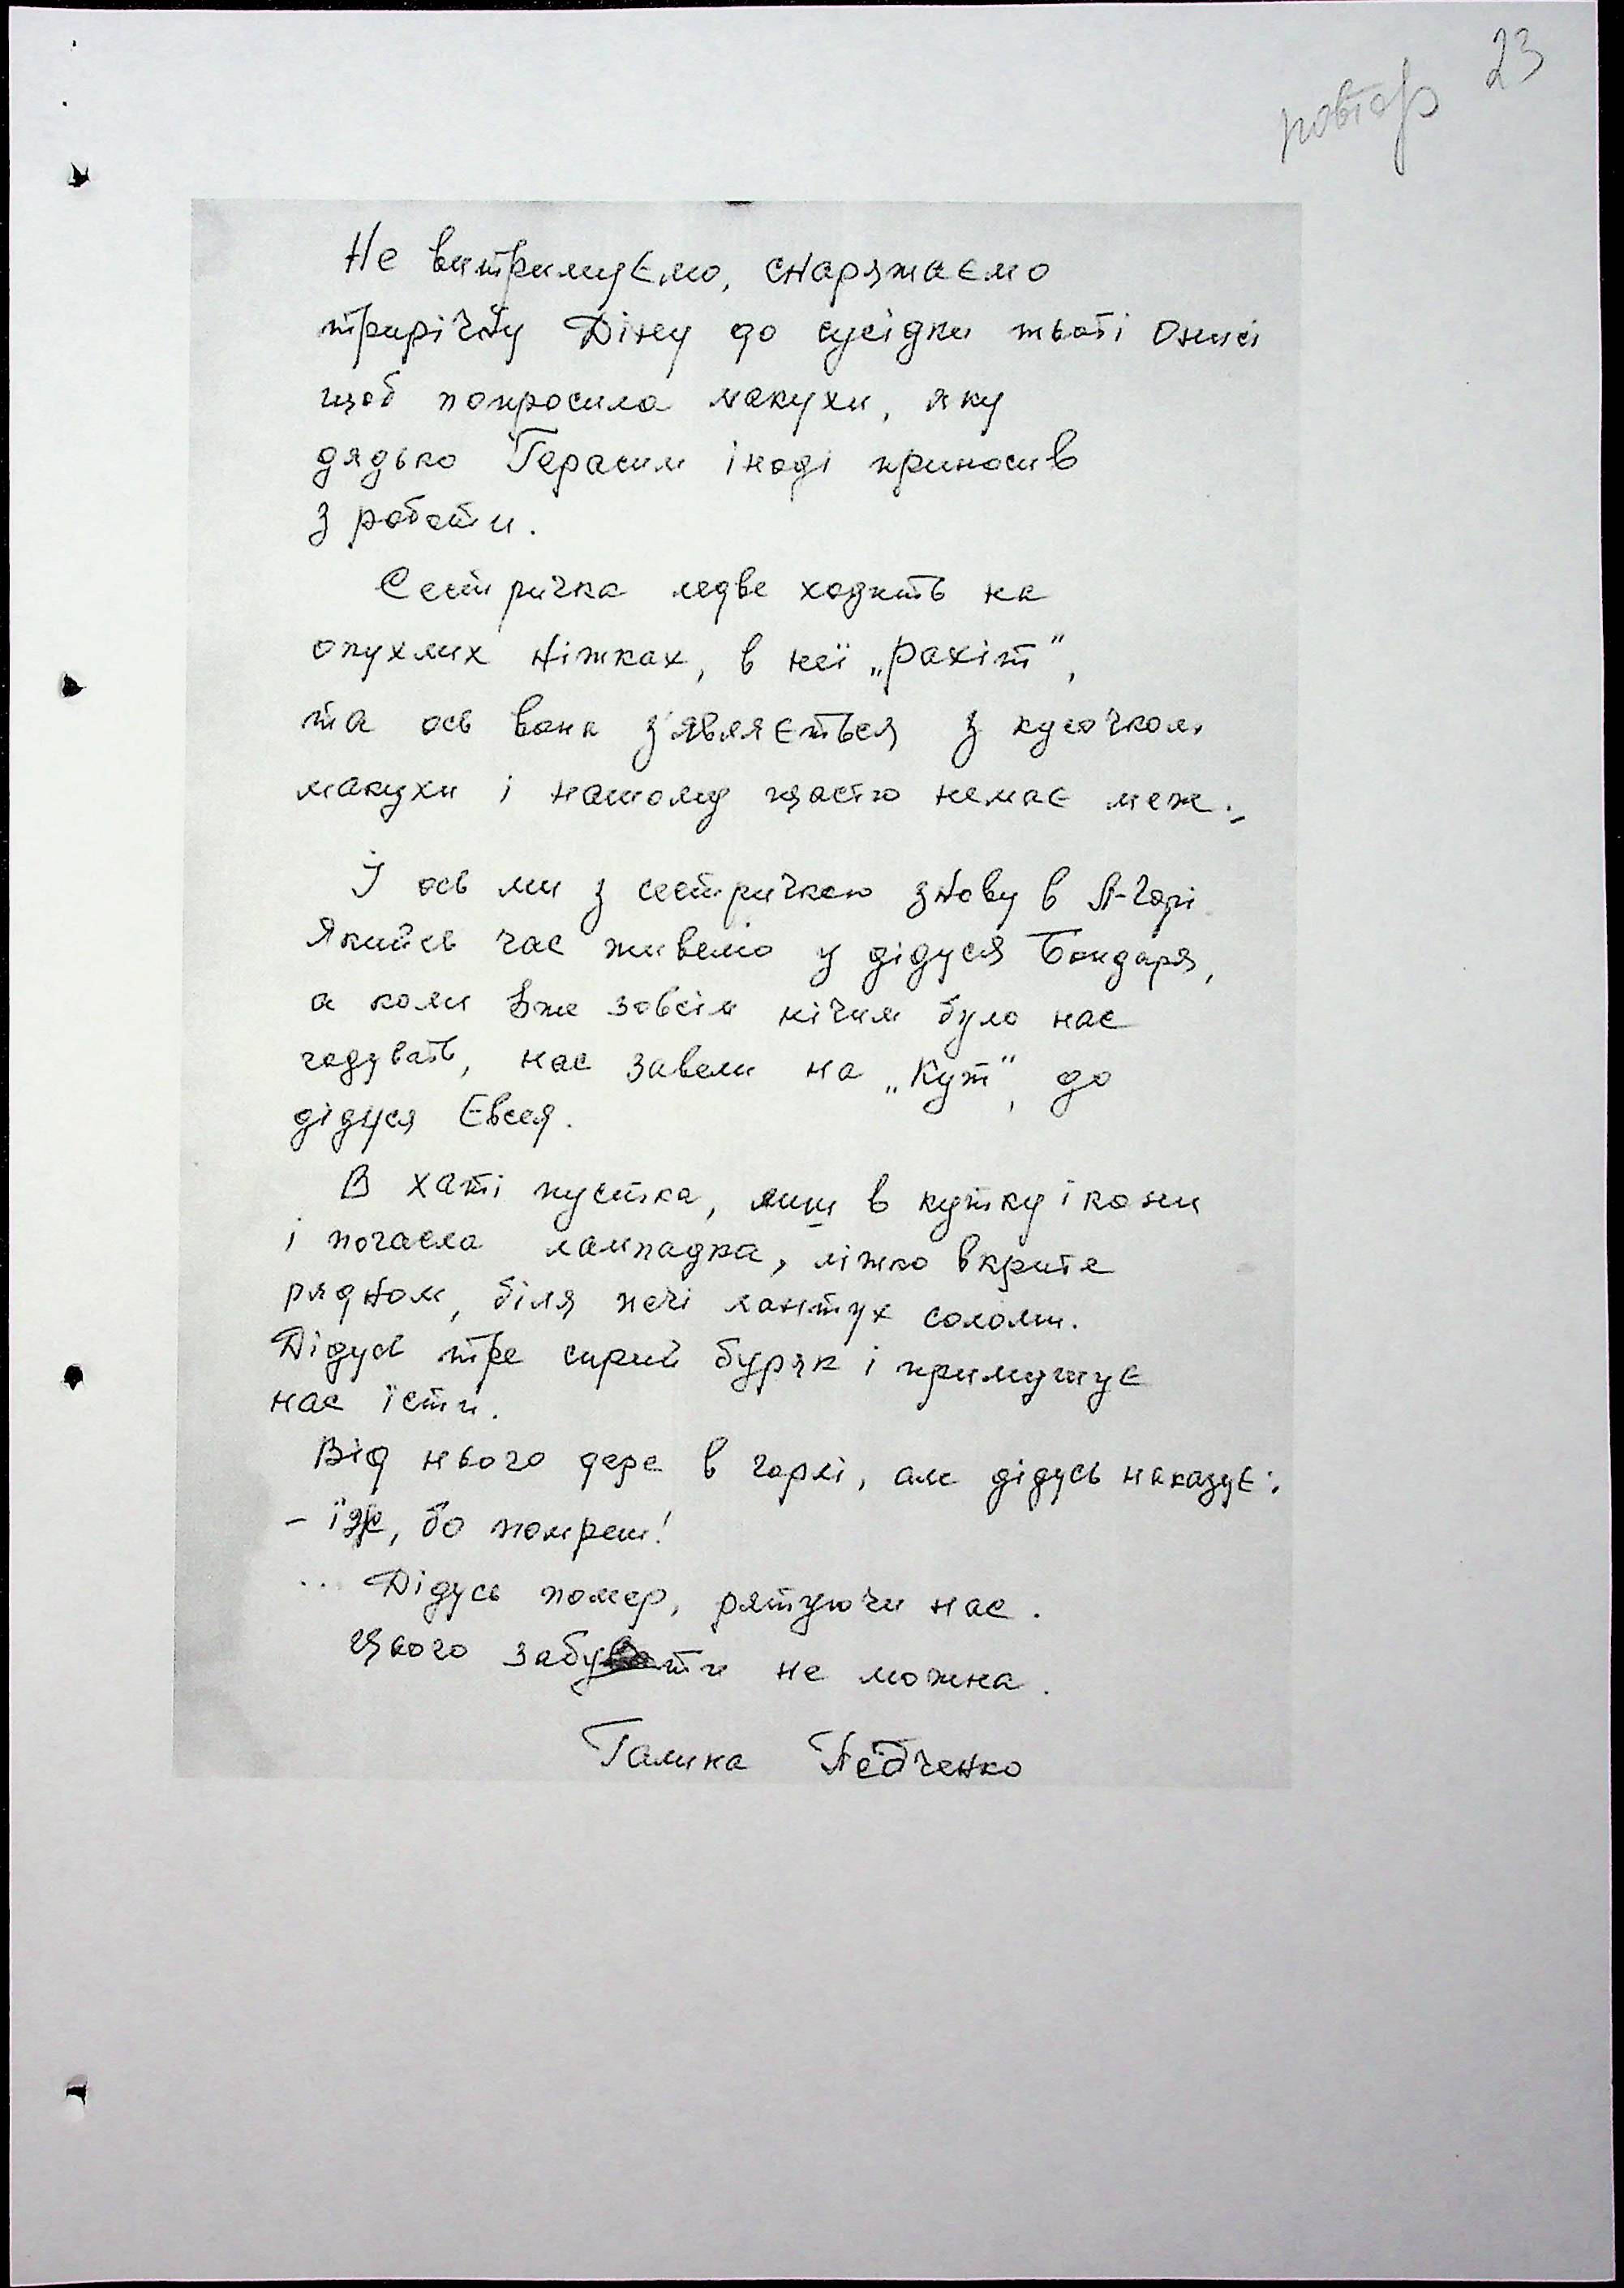 23
повтор
Не витримуємо, снаряжаємо
трирічну Діну до сусідки тьоті Онисі
щоб попросила макухи, яку
дядько Герасим іноді приносив
з роботи.
Сестричка ледве ходить на
опухлих ніжках, в неї „рахіт“,
та ось вона з'являється з кусочком
макухи і нашому щастю немає меж.
І ось ми з сестричкою знову в Л-Горі
Якийсь час живемо у дідуся Бондаря,
а коли вже зовсім нічим було нас
годувать, нас завели на „Кут“, до
дідуся Євсея.
В хаті пустка, лиш в кутку ікони
і погасла лампадка, ліжко вкрите
рядном, біля печі лантух соломи.
Дідусь тре сирий буряк і примушує
нас їсти.
Від нього дере в горлі, але дідусь наказує:
– їж, бо помреш!
... Дідусь помер, рятуючи нас.
Цього забути не можна.
Галина